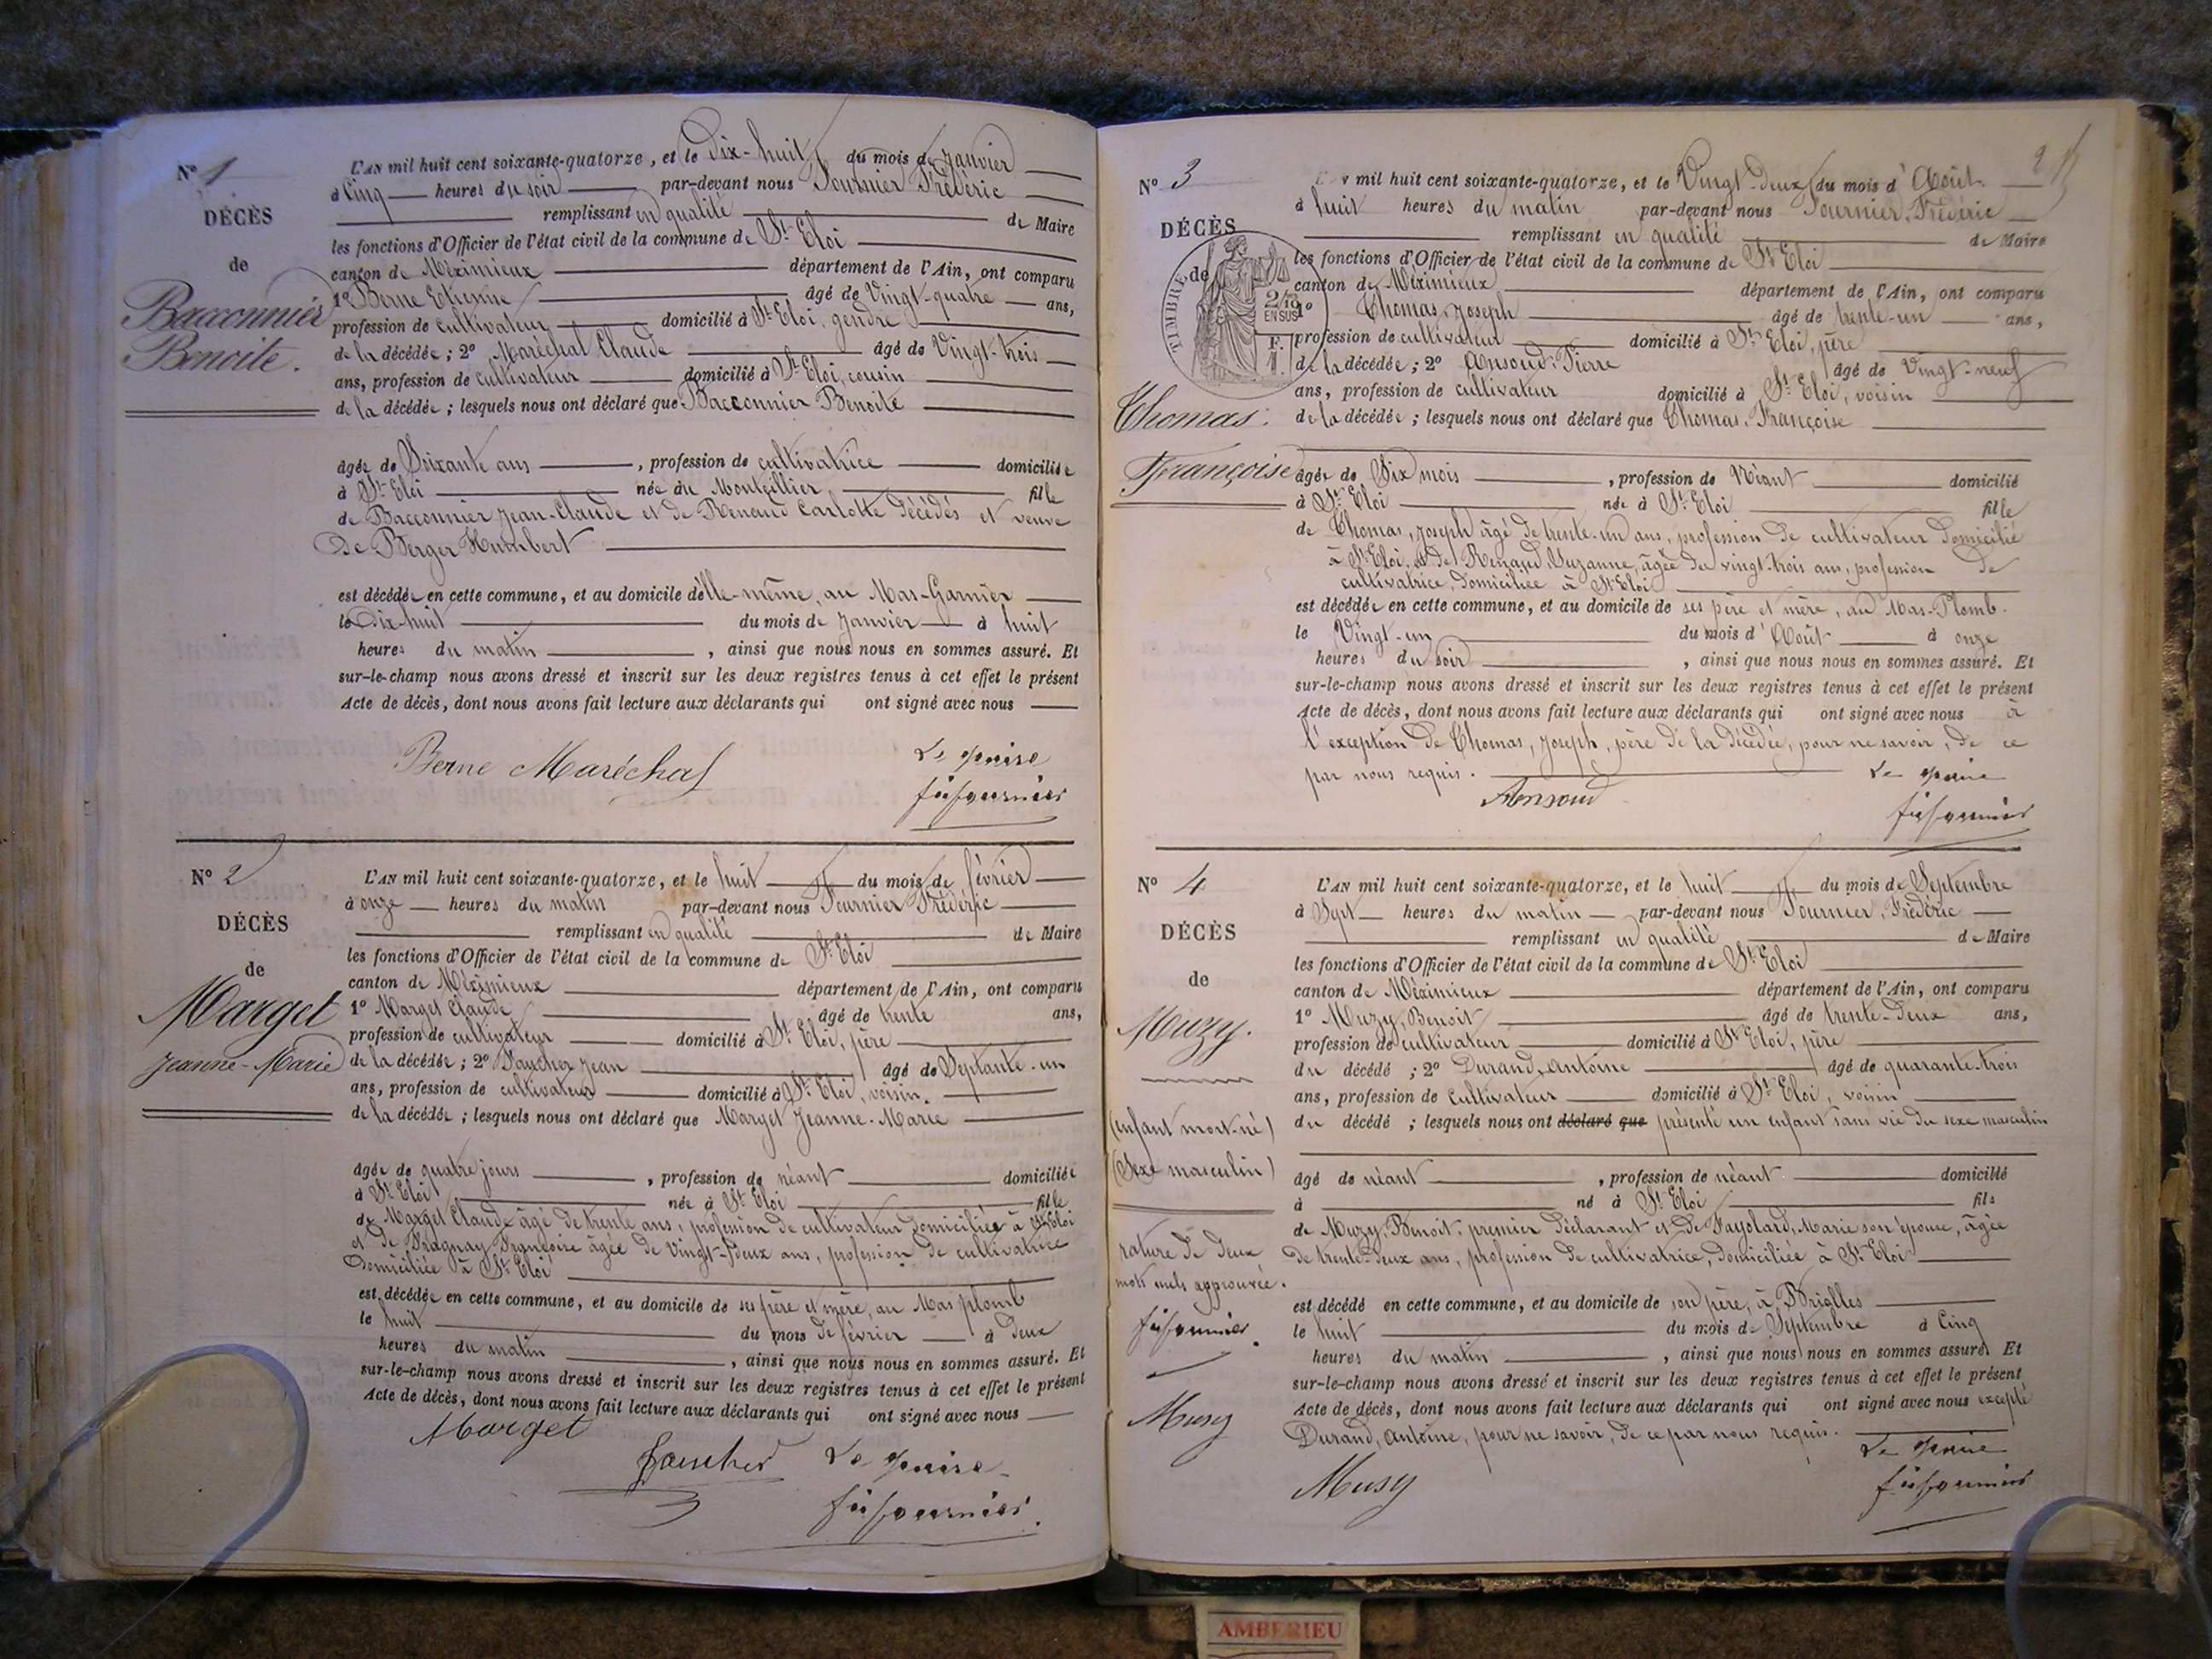 N° 1
DÉCÈS
de
Bacconnier
Benoite.
L'AN mil huit cent soixante-quatorze, et le Dix-huit du mois de Janvier
à Cinq heures du soir par-devant nous Fournier Frédéric
remplissant en qualité de Maire
les fonctions d'Officier de l'état civil de la commune de St. Eloi
canton de Méximieux département de l'Ain, ont comparu
1° Berne Etienne âgé de Vingt-quatre ans,
profession de cultivateur domicilié à St. Eloi, gendre
de la décédée; 2° Maréchal Claude âgé de Vingt-trois
ans, profession de cultivateur domicilié à St. Eloi, cousin
de la décédée; lesquels nous ont déclaré que Bacconnier Benoite
âgée de Soixante ans, profession de cultivatrice domiciliée
à St. Eloi née au Montellier fille
de Bacconnier Jean-Claude et de Renaud Carlotte décédés et veuve
de Berger Humbert
est décédée en cette commune, et au domicile d'elle-même, au Mas-Garnier
le Dix-huit du mois de Janvier à huit
heures du matin, ainsi que nous nous en sommes assuré. Et
sur-le-champ nous avons dressé et inscrit sur les deux registres tenus à cet effet le présent
Acte de décès, dont nous avons fait lecture aux déclarants qui ont signé avec nous
Berne Maréchal Le Maire
Fournier
N° 2
DÉCÈS
de
Marget
Jeanne-Marie
L'AN mil huit cent soixante-quatorze, et le huit du mois de février
à onze heures du matin par-devant nous Fournier Frédéric
remplissant en qualité de Maire
les fonctions d'Officier de l'état civil de la commune de St. Eloi
canton de Méximieux département de l'Ain, ont comparu
1° Marget Claude âgé de trente ans,
profession de cultivateur domicilié à St. Eloi, père
de la décédée; 2° Faucher Jean âgé de Septante-un
ans, profession de cultivateur domicilié à St. Eloi, voisin.
de la décédée; lesquels nous ont déclaré que Marget Jeanne-Marie
âgée de quatre jours, profession de néant domiciliée
à St. Eloi née à St. Eloi fille
de Marget Claude âgé de trente ans, profession de cultivateur domiciliée à St. Eloi
et de Françoise âgée de Vingt-deux ans, profession de cultivatrice
domiciliée à St. Eloi
est décédée en cette commune, et au domicile de ses père et mère, au Mas plomb
le huit du mois de février à deux
heures du matin, ainsi que nous nous en sommes assuré. Et
sur-le-champ nous avons dressé et inscrit sur les deux registres tenus à cet effet le présent
Acte de décès, dont nous avons fait lecture aux déclarants qui ont signé avec nous
Marget
Faucher Le Maire
Fournier
2
N° 3
DÉCÈS
de
TIMBRE
2/10 EN SUS
F.
1.
Thomas.
Françoise
L'AN mil huit cent soixante-quatorze, et le Vingt-deux du mois d'Août
à huit heures du matin par-devant nous Fournier, Frédéric
remplissant en qualité de Maire
les fonctions d'Officier de l'état civil de la commune de St. Eloi
canton de Méximieux département de l'Ain, ont comparu
1° Thomas, Joseph âgé de trente-un ans,
profession de cultivateur domicilié à St. Eloi, père
de la décédée; 2° Ansoud, Pierre âgé de Vingt-neuf
ans, profession de cultivateur domicilié à St. Eloi, voisin
de la décédée; lesquels nous ont déclaré que Thomas, Françoise
âgée de Six mois, profession de Néant domicilié
à St. Eloi née à St. Eloi fille
de Thomas, Joseph âgé de trente-un ans, profession de cultivateur domicilié
à St. Eloi, et de Renaud, Suzanne, âgée de vingt-trois ans, profession de
cultivatrice, domiciliée à St. Eloi
est décédée en cette commune, et au domicile de ses père et mère, au Mas-Plomb.
le Vingt-un du mois d'Août à onze
heures du soir, ainsi que nous nous en sommes assuré. Et
sur-le-champ nous avons dressé et inscrit sur les deux registres tenus à cet effet le présent
Acte de décès, dont nous avons fait lecture aux déclarants qui ont signé avec nous à
l'exception de Thomas, Joseph, père de la décédée, pour ne savoir, de ce
par nous requis. Le Maire
Ansoud Fournier
N° 4
DÉCÈS
de
Muzy.
(enfant mort-né)
(Sexe masculin)
rature de deux
mots nuls approuvée.
Fournier
Musy
L'AN mil huit cent soixante-quatorze, et le huit du mois de Septembre
à Sept heures du matin par-devant nous Fournier, Frédéric
remplissant en qualité de Maire
les fonctions d'Officier de l'état civil de la commune de St. Eloi
canton de Méximieux département de l'Ain, ont comparu
1° Muzy, Benoit âgé de trente-deux ans,
profession de cultivateur domicilié à St. Eloi, père
du décédé; 2° Durand, Antoine âgé de quarante-trois
ans, profession de cultivateur domicilié à St. Eloi, voisin
du décédé; lesquels nous ont déclaré que présenté un enfant sans vie du sexe masculin
âgé de néant, profession de néant domicilié
à né à St. Eloi fils
de Muzy, Benoit, premier déclarant et de Fayolard, Marie son épouse, âgée
de trente-deux ans, profession de cultivatrice, domiciliée à St. Eloi
est décédé en cette commune, et au domicile de son père, à Brialles
le huit du mois de Septembre à Cinq
heures du matin, ainsi que nous nous en sommes assuré. Et
sur-le-champ nous avons dressé et inscrit sur les deux registres tenus à cet effet le présent
Acte de décès, dont nous avons fait lecture aux déclarants qui ont signé avec nous excepté
Durand, Antoine, pour ne savoir, de ce par nous requis.
Le Maire
Musy Fournier
AMBERIEU